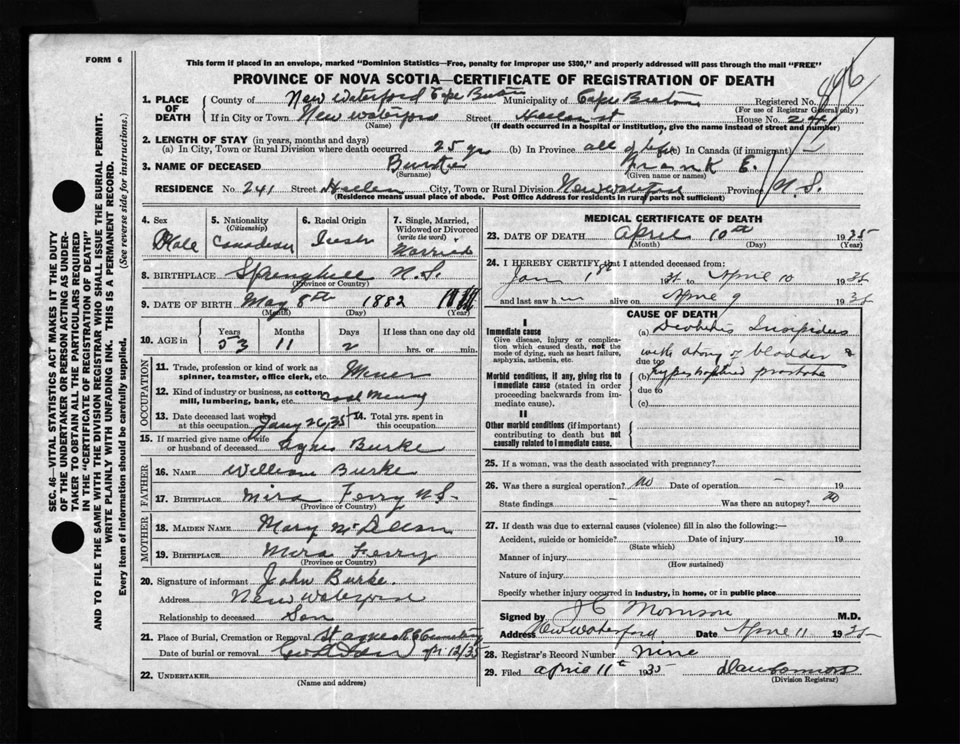 FORM 6
This form if placed in an envelope, marked "Dominion Statistics—Free, penalty for improper use $300," and properly addressed will pass through the mail "FREE"
PROVINCE OF NOVA SCOTIA—CERTIFICATE OF REGISTRATION OF DEATH
896
1. PLACE OF DEATH
County of New Waterford Cape Breton Municipality of Cape Breton Registered No.
(For use of Registrar General only)
If in City or Town New Waterford Street Heelan st House No. 241
(Name) (If death occurred in a hospital or institution, give the name instead of street and number)
2. LENGTH OF STAY (in years, months and days)
(a) In City, Town or Rural Division where death occurred 25 yrs (b) In Province all of life (c) In Canada (if immigrant)
3. NAME OF DECEASED Burke Frank E.
(Surname) (Given name or names)
RESIDENCE No. 241 Street Heelan City, Town or Rural Division New Waterford Province N.S.
(Residence means usual place of abode. Post Office Address for residents in rural parts not sufficient)
4. Sex Male
5. Nationality (Citizenship) Canadian
6. Racial Origin Irish
7. Single, Married, Widowed or Divorced (write the word) Married
8. BIRTHPLACE Springhill N.S.
(Province or Country)
9. DATE OF BIRTH May 8th 1882
(Month)
10. AGE in Years 53 Months 11 Days 2 If less than one day old hrs. or min.
OCCUPATION
11. Trade, profession or kind of work as spinner, teamster, office clerk, etc. Miner
12. Kind of industry or business, as cotton mill, lumbering, bank, etc. Coal Mining
13. Date deceased last worked at this occupation Jany 26/35 14. Total yrs. spent in this occupation
15. If married give name of wife or husband of deceased Agnes Burke
FATHER
16. NAME William Burke
17. BIRTHPLACE Mira Ferry N.S.
(Province or Country)
MOTHER
18. MAIDEN NAME Mary
19. BIRTHPLACE Mira Ferry
(Province or Country)
20. Signature of informant John Burke.
Address New Waterford
Relationship to deceased Son
21. Place of Burial, Cremation or Removal St agnes R.C. Cemetery
Date of burial or removal 12/35
22. UNDERTAKER
(Name and address)
MEDICAL CERTIFICATE OF DEATH
23. DATE OF DEATH April 10th 1935
(Month) (Day) (Year)
24. I HEREBY CERTIFY, that I attended deceased from:
Jan 1st 35 to April 10 1935
and last saw him alive on April 9 1935
CAUSE OF DEATH
I
Immediate cause
Give disease, injury or complication which caused death, not the mode of dying, such as heart failure, asphyxia, asthenia, etc.
(a) Diabetes Insipidus
with stony bladder &
due to
Morbid conditions, if any, giving rise to immediate cause (stated in order proceeding backwards from immediate cause).
(b) hypertrophied prostate
due to
(c)
II
Other morbid conditions (if important) contributing to death but not causally related to immediate cause.
25. If a woman, was the death associated with pregnancy?
26. Was there a surgical operation? no Date of operation - 19
State findings - Was there an autopsy? no
27. If death was due to external causes (violence) fill in also the following:—
Accident, suicide or homicide? Date of injury 19
(State which)
Manner of injury
(How sustained)
Nature of injury
Specify whether injury occurred in industry, in home, or in public place
Signed by J C Morrison M.D.
Address New Waterford Date April 11 1935
28. Registrar's Record Number nine
29. Filed april 11th 1935
(Division Registrar)
SEC. 46—VITAL STATISTICS ACT MAKES IT THE DUTY
OF THE UNDERTAKER OR PERSON ACTING AS UNDER-
TAKER TO OBTAIN ALL THE PARTICULARS REQUIRED
IN THE "CERTIFICATE OF REGISTRATION OF DEATH"
AND TO FILE THE SAME WITH THE DIVISION REGISTRAR WHO SHALL ISSUE THE BURIAL PERMIT.
WRITE PLAINLY WITH UNFADING INK. THIS IS A PERMANENT RECORD.
Every item of information should be carefully supplied. (See reverse side for instructions.)